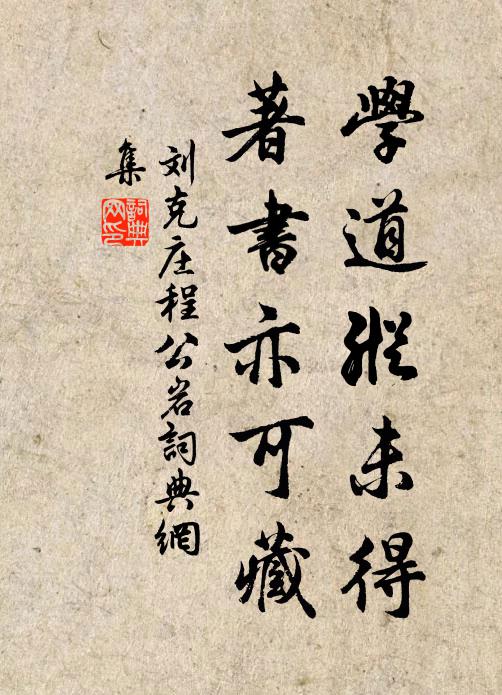 學道縱未得
著書亦可藏
刘克庄程公岩詞典網
集
詞典
网印